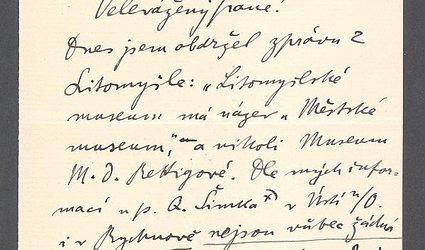 Velevážený pane!
Dnes jsem obdržel zprávu z
Litomyšle: „Litomyšlské
museum má název „Městské
museum“, a nikoli Museum
M. D. Rettigové. Dle mých infor-
mací u p. Q. Šimka x) v Ústí n/O.
i v Rychnově nejsou vůbec žádná